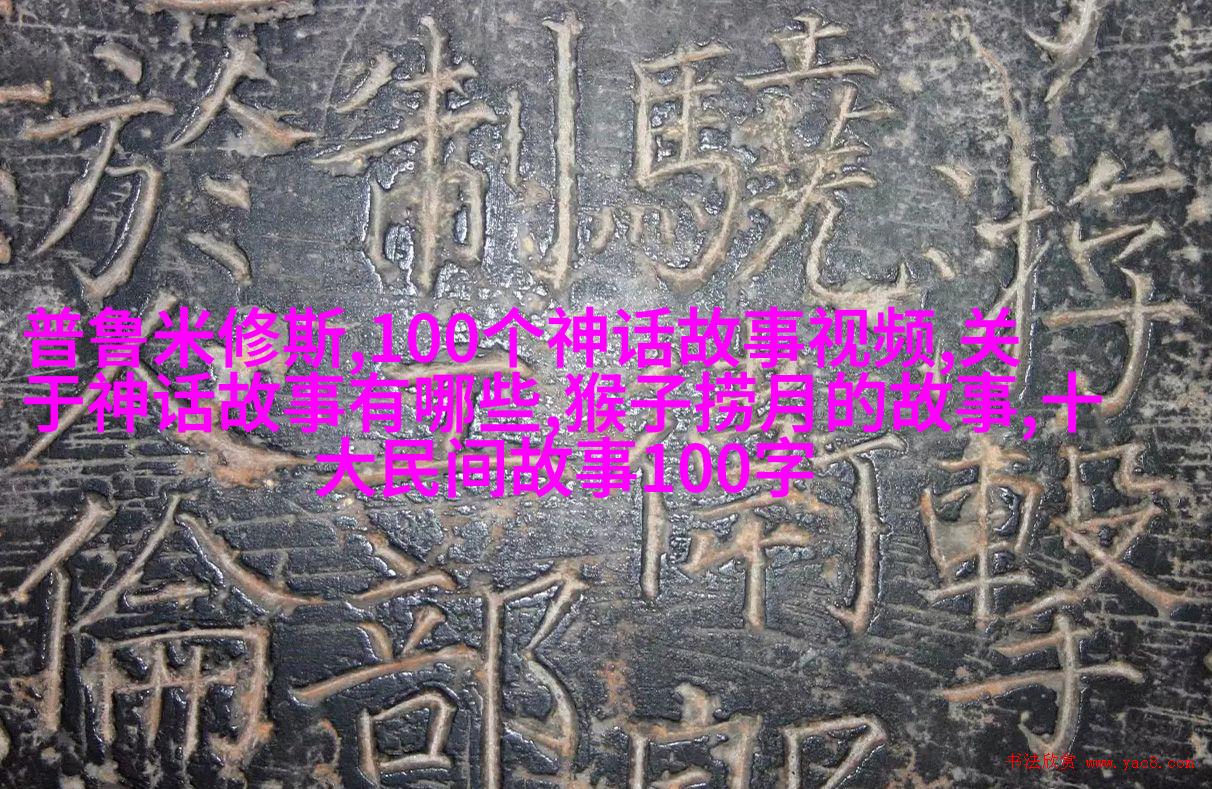 普鲁米修斯,100个神话故事视频,关
于神话故事有哪些,猴子捞月的故事,十
大民间故事100字
將擊
驍衛
制部
於人倫
书法欣赏 www.yac8.com